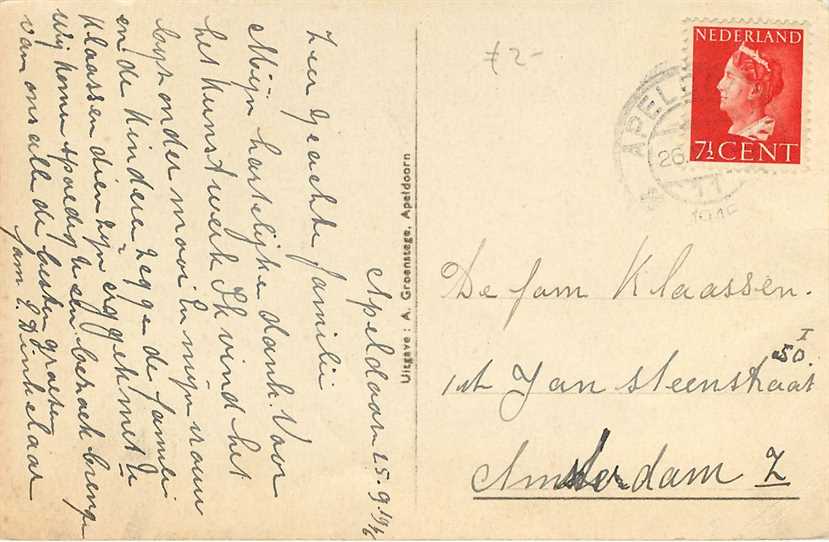 Apeldoorn 25.9.1946
Zeer Geachte familie
Mijn hartelijke dank. Voor
het kunstwerk Ik vind het
byzonder mooi En mijn vrouw
en de kinderen zegge de familie
Klaassen dien zijn
wij komen spoedig U een bezoek brenge
van ons alle de besten groeten
fam Dinkelaar
Uitgave: A. Groenstege, Apeldoorn
f 2-
NEDERLAND
7½ CENT
APEL
26.
11
De fam Klaassen.
1st Jan steenstraat
50 I
Amsterdam Z